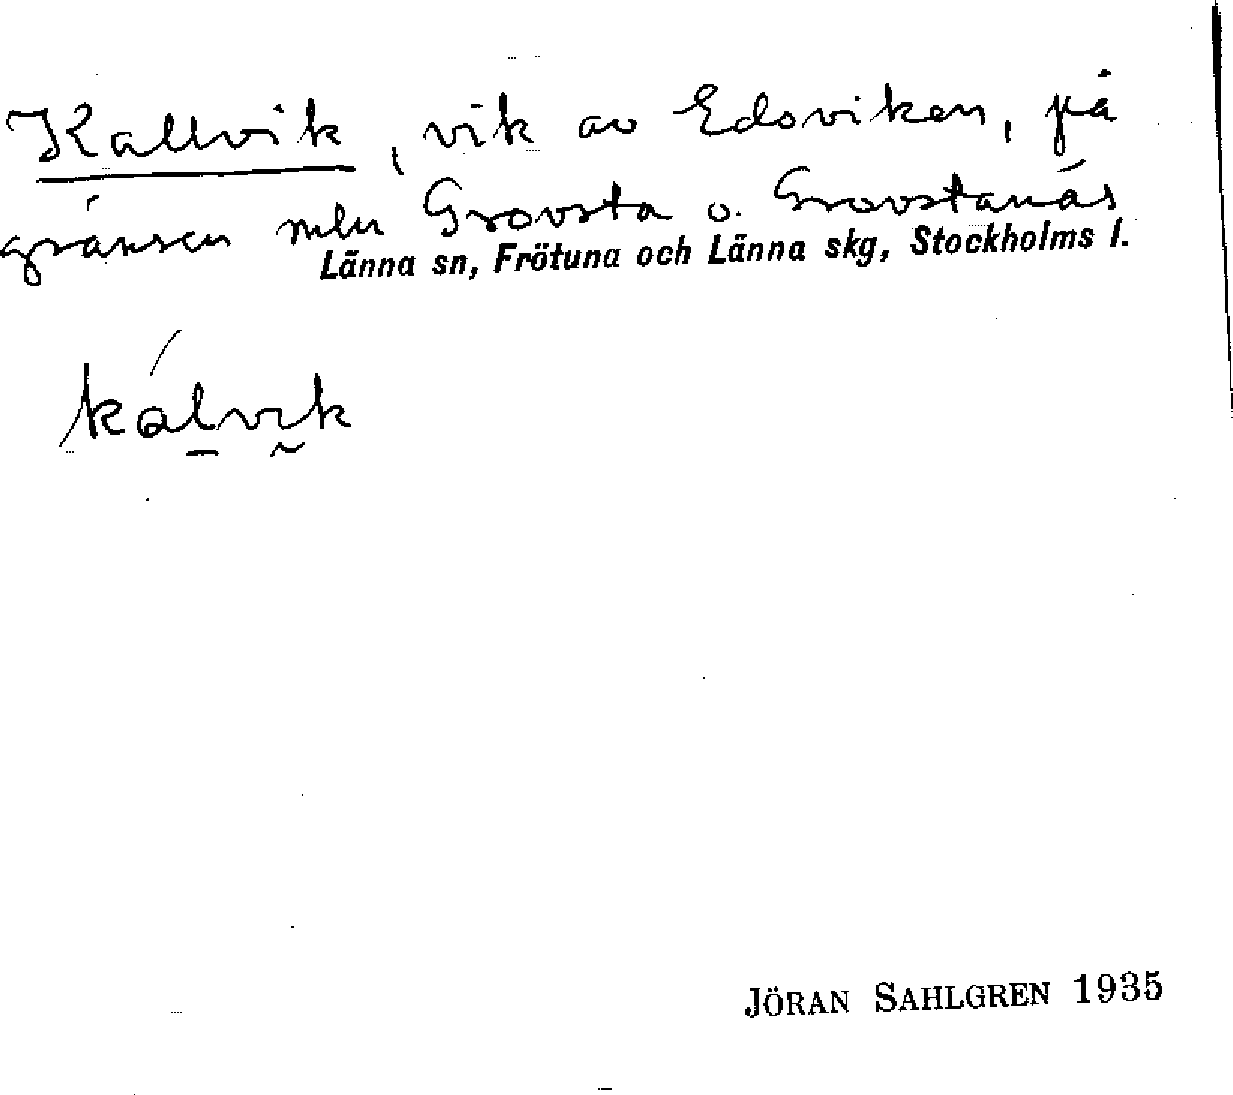 Kallvik, vik av Edsviken, på
gränsen mln Grovsta o. Grovstanäs
Länna sn, Frötuna och Länna skg, Stockholms l.
kálvik
JÖRAN SAHLGREN 1935